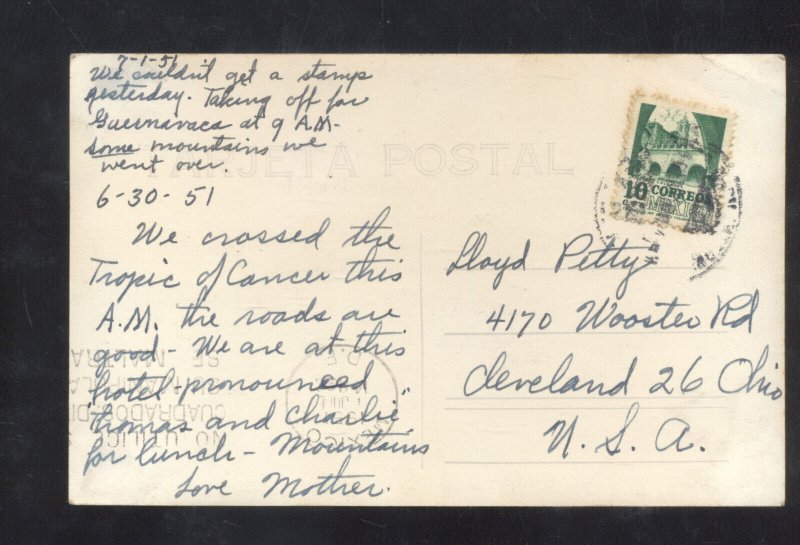 7-1-51
We couldn't get a stamp
yesterday. Taking off for
Guernavaca at 9 A.M.-
some mountains we
went over.
TARJETA POSTAL
6-30-51
We crossed the
Tropic of Cancer this
A.M. the roads are
good - We are at this
hotel - pronounced
"Thomas and Charlie"
for lunch - Mountains
Love Mother.
10 CORREOS
MEXICO
Lloyd Petty
4170 Wooster Rd
Cleveland 26 Ohio
U.S.A.